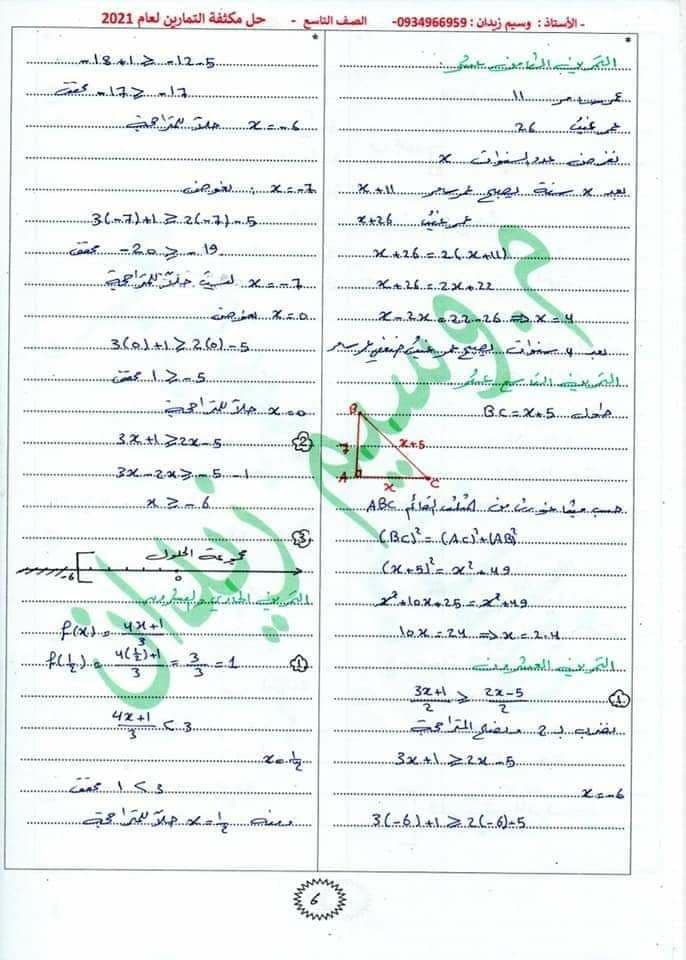 - الأستاذ : وسيم زيدان : 0934966959- الصف التاسع - حل مكثفة التمارين لعام 2021
التمرين الثامن عشر :
عمر سامر 11
عمر غيث 26
نفرض عدد السنوات x
بعد x سنة يصبح عمر سامر x+11
عمر غيث x+26
x+26 = 2(x+11)
x+26 = 2x+22
x-2x = 22-26 ⇒ x=4
بعد 4 سنوات يصبح عمر غيث ضعفي عمر سامر
التمرين التاسع عشر
طول BC = x+5
B
7
x+5
A
x
C
حسب فيثاغورث من المثلث القائم ABC
(BC)² = (AC)² + (AB)²
(x+5)² = x² + 49
x² + 10x + 25 = x² + 49
10x = 24 ⇒ x = 2.4
التمرين العشرون
1 (3x+1)/2 ≥ (2x-5)/2
نضرب بـ 2 وتصبح المتراجحة
3x+1 ≥ 2x-5
x=-6
3(-6)+1 ≥ 2(-6)-5
-18+1 ≥ -12-5
-17 ≥ -17 محقق
x=-6 حلاً للمتراجحة
x=-7 : نعوض
3(-7)+1 ≥ 2(-7)-5
-20 ≥ -19 محقق
x=-7 ليست حلاً للمتراجحة
x=0 نعوض
3(0)+1 ≥ 2(0)-5
1 ≥ -5 محقق
x=0 حلاً للمتراجحة
2 3x+1 ≥ 2x-5
3x-2x ≥ -5-1
x ≥ -6
3
مجموعة الحلول
-6 0
التمرين الحادي والعشرون
f(x) = (4x+1)/3
1 f(1/2) = (4(1/2)+1)/3 = 3/3 = 1
(4x+1)/3 < 3
x=1/2
1 < 3 محقق
ومنه x=1/2 حلاً للمتراجحة
م. وسيم زيدان
6